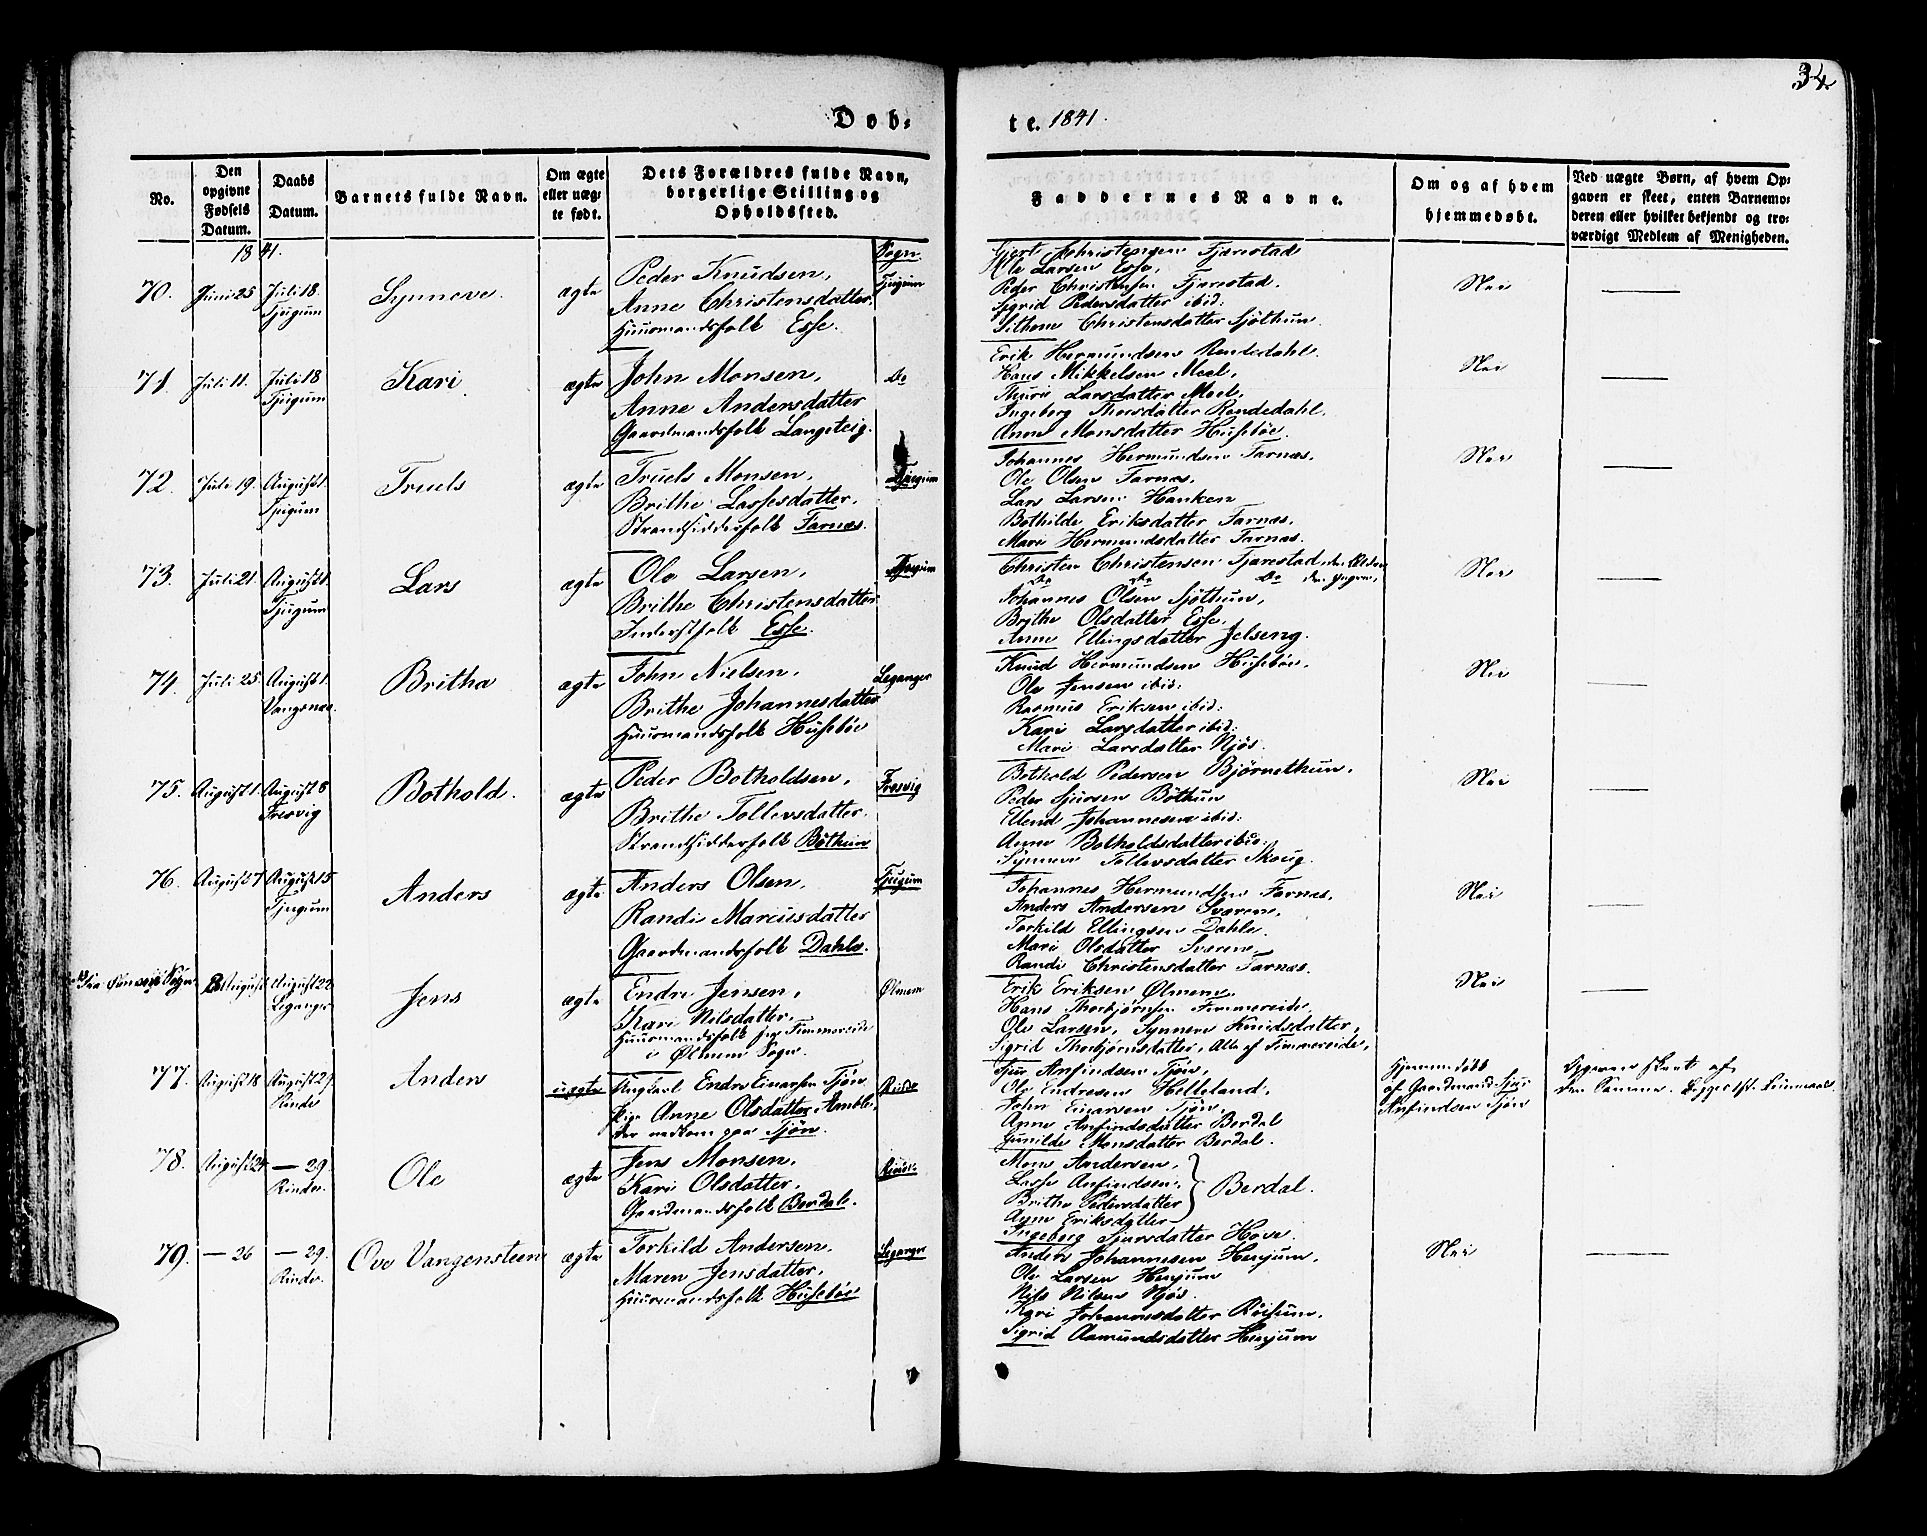 34
Døb-
te. 1841.
No.
Den opgivne Fødsels Datum.
Daabs Datum.
Barnets fulde Navn.
Om ægte eller uægte født.
Dets Forældres fulde Navn, borgerlige Stilling og Opholdssted.
Faddernes Navne.
Om og af hvem hjemmedøbt.
Ved uægte Børn, af hvem Opgaven er skeet, enten Barnemoderen eller hvilket bekjendt og troværdigt Medlem af Menigheden.
1841.
Sogn
70. Juni 25 Juli 18 Tjugum Synneve ægte
Peder Knudsen,
Anne Christensdatter,
Huusmandsfolk Esse.
Tjugum
Christensen Fjærestad
Ole Larsen Esse,
Peder Christensen Fjærestad.
Sigrid Pedersdatter ibid:
Christensdatter Sjøthun.
Nei
71. Juli 11. Juli 18 Tjugum Kari ægte
John Monsen,
Anne Andersdatter
Gaardmandsfolk Langsteig.
Do
Erik Hermundsen Rendedahl.
Hans Mikkelsen Meel,
Thuri Larsdatter Meel,
Ingeborg Thorsdatter Rendedahl.
Anne Monsdatter Husebøe.
Nei
72. Juli 19. August 1. Tjugum Truels ægte
Truels Monsen,
Brithe Lassesdatter,
Strandsidderfolk Farnæs.
Tjugum
Johannes Hermundsen Farnæs,
Ole Olsen Farnæs,
Lars Larsen Hanken
Bothilde Eriksdatter Farnæs,
Mari Hermundsdatter Farnæs.
Nei
73. Juli 21. August 1. Tjugum Lars ægte
Ole Larsen,
Brithe Christensdatter
Inderstfolk Esse.
Tjugum
Christen Christensen Fjærestad den Ældre
Do Do Do den Yngre,
Johannes Olsen Sjøthun,
Brithe Olsdatter Esse,
Anne Ellingsdatter Jelseng.
Nei
74. Juli 25 August 1. Vangsnæs Britha ægte
John Nielsen,
Brithe Johannesdatter
Huusmandsfolk Husebøe
Leganger
Knud Hermundsen Husebøe,
Ole Jensen ibid:
Rasmus Eriksen ibid:
Kari Larsdatter ibid:
Mari Larsdatter Njøs.
Nei
75. August 1. August 8 Fresvig Bothold. ægte
Peder Botholdsen,
Brithe Tollevsdatter,
Strandsidderfolk Bøthun
Fresvig
Bothold Pedersen Bjørnethun,
Peder Sjursen Bøthun
Ellend Johannesen ibid:
Anne Botholdsdatter ibid:
Synneve Tollevsdatter Skoug.
Nei
76. August 7 August 15 Tjugum Anders ægte
Anders Olsen,
Randi Marcusdatter
Gaardmandsfolk Dahle.
Tjugum
Johannes Hermundsen Farnæs,
Anders Andersen Sværen,
Torkild Ellingsen Dahle,
Mari Olsdatter Sværen,
Randi Christensdatter Farnæs.
Nei
August August 22 Leganger Jens ægte
Endre Jensen,
Kari Nilsdatter,
Huusmandsfolk fra Fimmereide
i Ølmem Sogn.
Ølmem
Erik Eriksen Ølmem,
Hans Thorbjørnsen Fimmereide,
Ole Larsen, Synneve Knudsdatter,
Sigrid Thorbjørnsdatter, Alle af Fimmereide,
Nei
77. August 18 August 29. Rinde Anders uægte
Ungkarl Endre Einarsen Tjøn,
Pige Anne Olsdatter Amble,
der nedkom paa Tjøn.
Rinde
Sjur Anfindsen Tjøn,
Ole Endresen Hilleland,
John Einarsen Tjøn,
Anne Anfindsdatter Berdal
Gunilde Monsdatter Berdal.
Hjemmedøbt
af Gaardmand Sjur
Anfindsen Tjøn
Opgaven skeet af
78. August 24 — 29. Rinde. Ole ægte
Jens Monsen,
Kari Olsdatter,
Gaardmandsfolk Berdale.
Rinde
Mons Andersen,
Lasse Anfindsen,
Brithe Pedersdatter
Anne Eriksdatter
Berdal.
Ingeborg Sjursdatter Hove.
79. — 26 — 29. Rinde. Ove Vangensteen ægte
Torkild Andersen,
Maren Jensdatter,
Huusmandsfolk Husebøe
Leganger
Anders Johannesen Henjum,
Ole Larsen Henjum
Nils Nilsen Njøs.
Kari Johannesdatter Røisum,
Sigrid Aamundsdatter Henjum
Nei